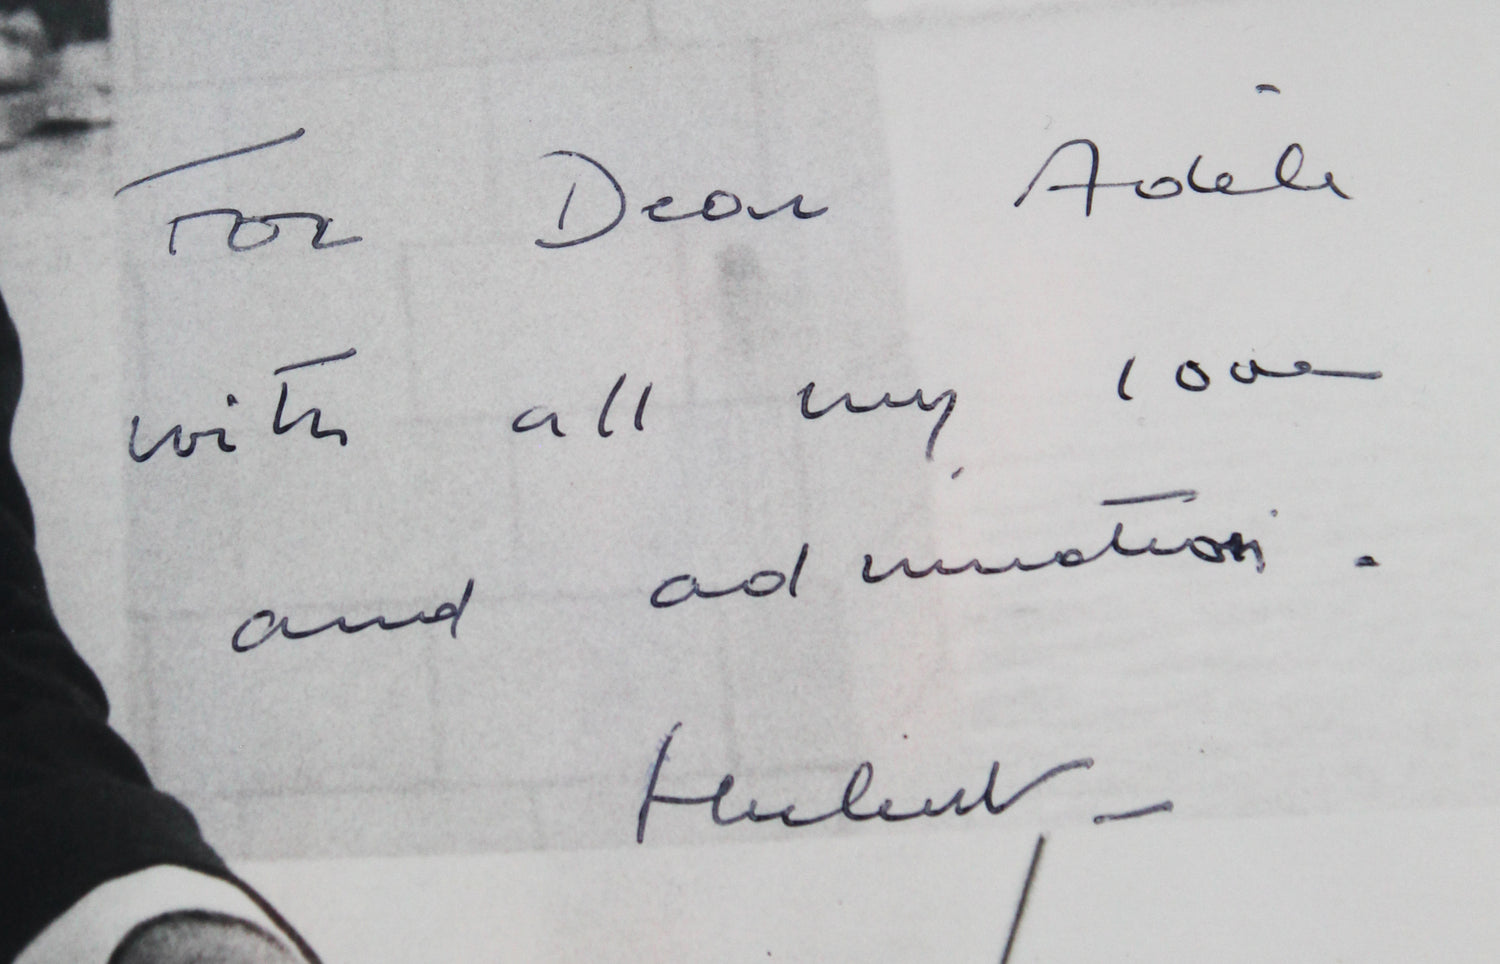 For Dear Adèle
with all my love
and admiration.
Hubert